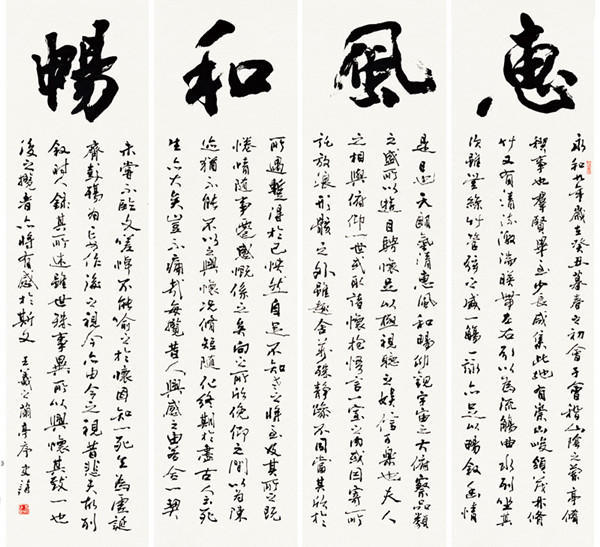 惠
永和九年歲在癸丑暮春之初會于會稽山陰之蘭亭脩
禊事也群賢畢至少長咸集此地有崇山峻領茂林脩
竹又有清流激湍暎帶左右引以為流觴曲水列坐其
次雖無絲竹管弦之盛一觴一詠亦足以暢敘幽情
風
是日也天朗氣清惠風和暢仰觀宇宙之大俯察品類
之盛所以遊目騁懷足以極視聽之娛信可樂也夫人
之相與俯仰一世或取諸懷抱悟言一室之內或因寄所
託放浪形骸之外雖趣舍萬殊靜躁不同當其欣於
和
所遇暫得於己怏然自足不知老之將至及其所之既
惓情隨事遷感慨係之矣向之所欣俛仰之間以為陳
迹猶不能不以之興懷況脩短隨化終期於盡古人云死
生亦大矣豈不痛哉每攬昔人興感之由若合一契
暢
未嘗不臨文嗟悼不能喻之於懷固知一死生為虛誕
齊彭殤為妄作後之視今亦由今之視昔悲夫故列
敘時人錄其所述雖世殊事異所以興懷其致一也
後之攬者亦將有感於斯文 王羲之蘭亭序